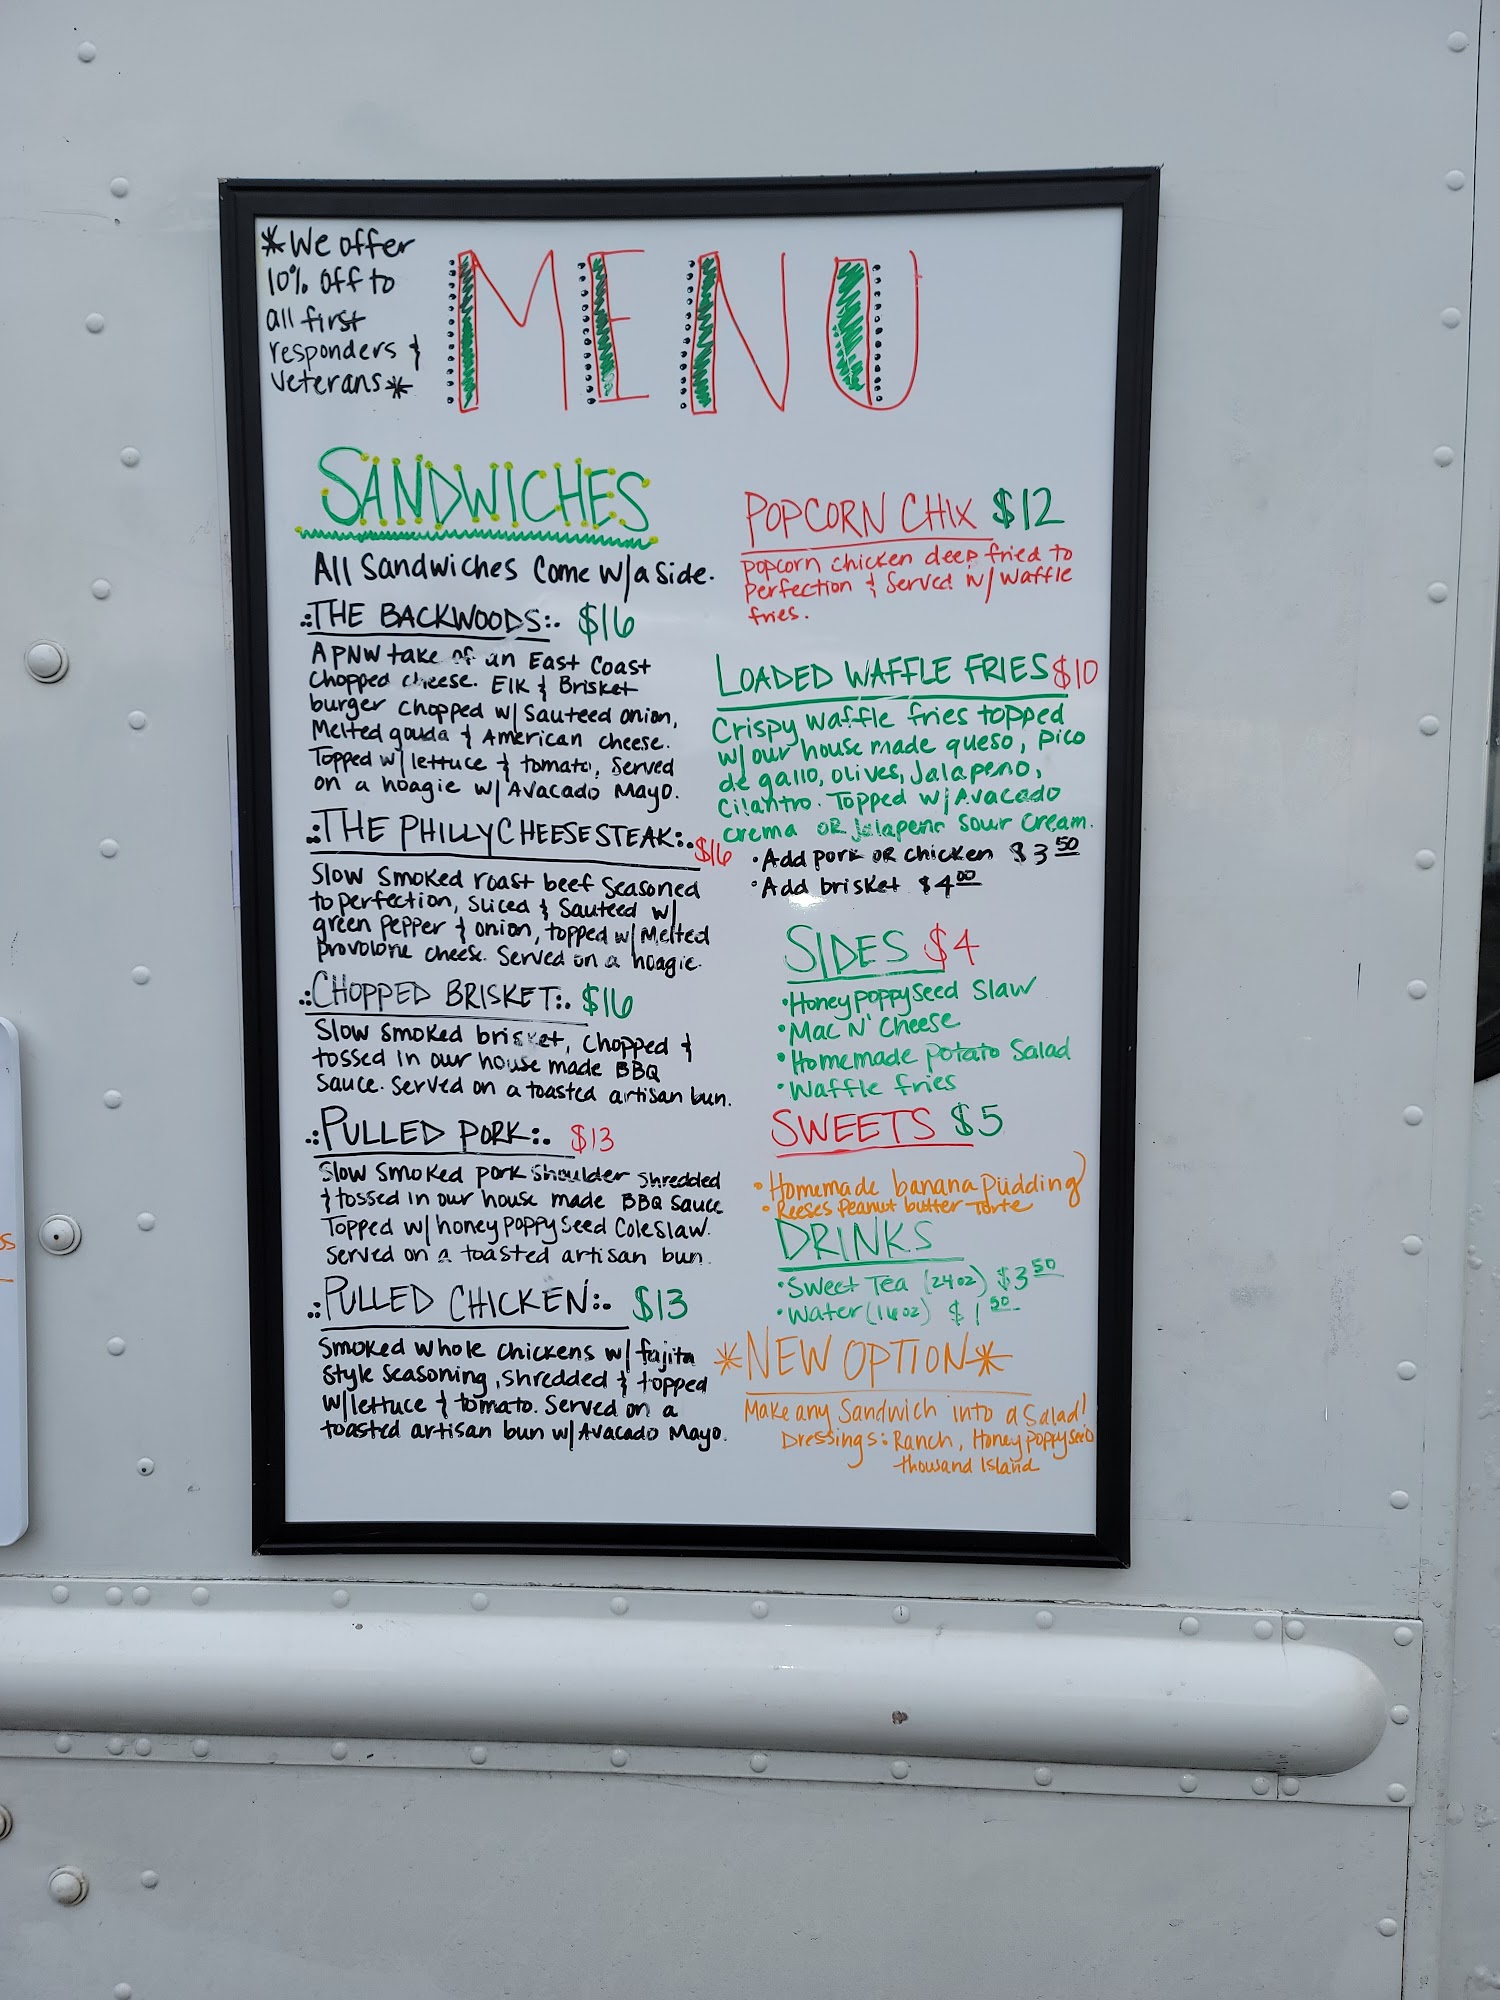 *We offer
10% off to
all first
responders &
veterans*
MENU
SANDWICHES
All Sandwiches Come w/a side.
.:THE BACKWOODS:. $16
A PNW take of an East Coast
Chopped cheese. Elk & Brisket
burger chopped w/ Sauteed onion,
Melted gouda & American cheese.
Topped w/ lettuce & tomato, Served
on a hoagie w/ Avacado Mayo.
.:THE PHILLY CHEESESTEAK:. $16
Slow Smoked roast beef Seasoned
to perfection, Sliced & Sauteed w/
green pepper & onion, topped w/ Melted
provolone cheese. Served on a hoagie.
.:CHOPPED BRISKET:. $16
Slow Smoked brisket, Chopped &
tossed in our house made BBQ
Sauce. Served on a toasted artisan bun.
.:PULLED PORK:. $13
Slow Smoked pork Shoulder Shredded
& tossed in our house made BBQ Sauce
Topped w/ honey poppyseed Coleslaw.
Served on a toasted artisan bun.
.:PULLED CHICKEN:. $13
Smoked whole chickens w/ fajita
Style seasoning, shredded & topped
w/lettuce & tomato. Served on a
toasted artisan bun w/ Avacado Mayo.
POPCORN CHIX $12
Popcorn chicken deep fried to
perfection & Served w/ waffle
fries.
LOADED WAFFLE FRIES $10
Crispy waffle fries topped
w/ our house made queso, pico
de gallo, olives, Jalapeno,
Cilantro. Topped w/ Avacado
crema OR Jalapeno Sour Cream.
• Add pork OR chicken $3 50
• Add brisket $4 00
SIDES $4
• Honey poppyseed Slaw
• Mac N' Cheese
• Homemade potato Salad
• Waffle fries
SWEETS $5
• Homemade banana Pudding
• Reeses Peanut butter Torte
DRINKS
• Sweet Tea (24oz) $3 50
• Water (16oz) $1 50
*NEW OPTION*
Make any Sandwich into a Salad!
Dressings: Ranch, Honey poppyseed
thousand Island